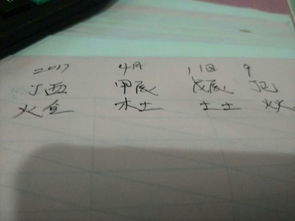 2017 4月 11日 9
丁酉 甲辰 戊辰 丁巳
火金 木土 土土 火火